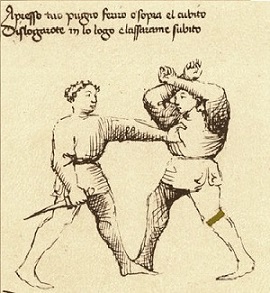 Apresso tuo pugno sopra el cubito
Dislogarote in lo logo e lassarame subito